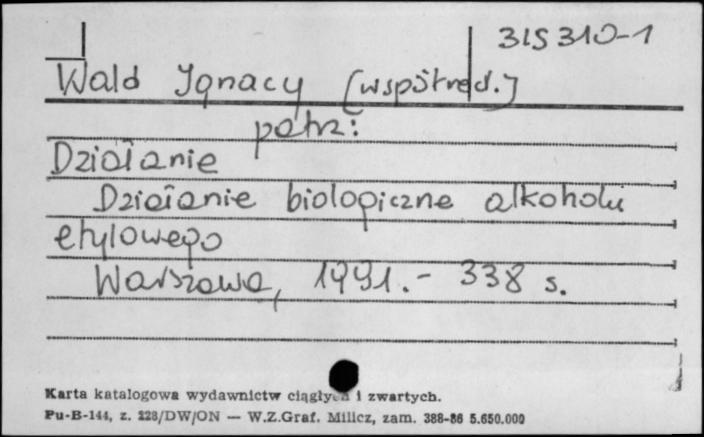 315310-1
Wald Ignacy [współred.]
patrz:
Działanie
Działanie biologiczne alkoholu
etylowego
Warszawa, 1991.- 338 s.
Karta katalogowa wydawnictw ciągłych i zwartych.
Pu-B-144, z. 228/DW/ON — W.Z.Graf. Milicz, zam. 388-86 5.650.000